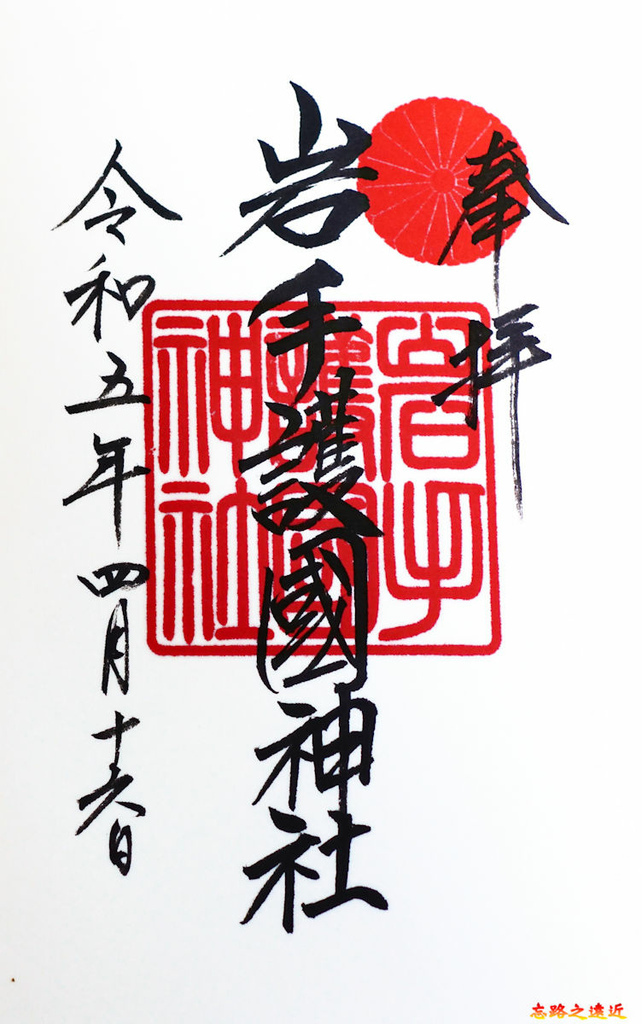 奉拝
岩手護國神社
令和五年四月十六日
岩手
護國
神社
忘路之遠近